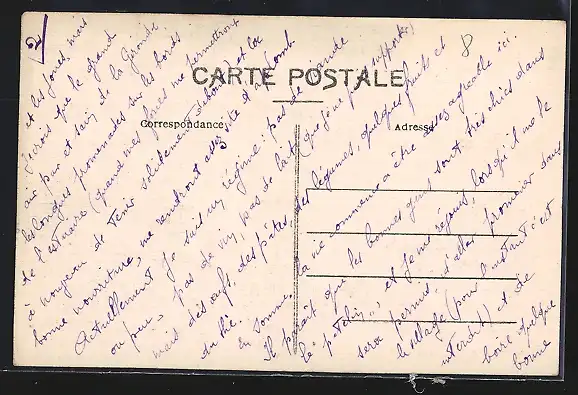 2/
8
CARTE POSTALE
Correspondance
Adresse
et les joues, mais
que le grand
air pur et sain de la Gironde
les longues promenades sur les bords
de l'estuaire (quand mes forces me permettront
à nouveau de tenir solidement debout) et la
bonne nourriture, me rendront assez vite
Actuellement je suis un régime : pas de viande
ou peu, pas de vin, pas de lait (que je ne puis supporter)
mais des œufs, des pâtes, des légumes, quelques fruits et
du
En somme, la vie commence à être assez agréable ici.
Il paraît que les bonnes gens sont très chics dans
le "patelin", et je me réjouis, lorsqu'il me le
sera permis, d'aller promener dans
le village (pour l'instant c'est
interdit) et de
boire quelque
bonne